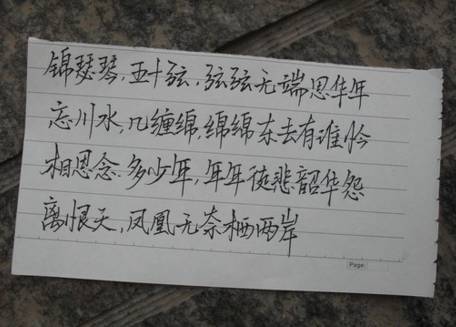 锦瑟琴,五十弦,弦弦无端思华年
忘川水,几缠绵,绵绵东去有谁怜
相思念.多少年,年年徒悲韶华怨
离恨天,凤凰无奈栖两岸
Page